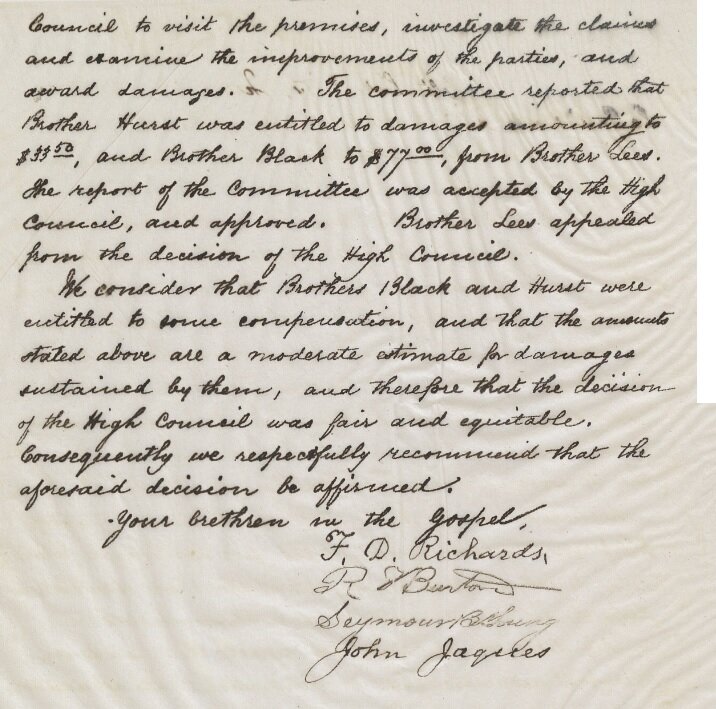 Council to visit the premises, investigate the claims
and examine the improvements of the parties, and
award damages. The committee reported that
Brother Hurst was entitled to damages amounting to
$33 50, and Brother Black to $77 00, from Brother Lees.
The report of the Committee was accepted by the High
Council, and approved. Brother Lees appealed
from the decision of the High Council.
We consider that Brothers Black and Hurst were
entitled to some compensation, and that the amounts
stated above are a moderate estimate for damages
sustained by them, and therefore that the decision
of the High Council was fair and equitable.
Consequently we respectfully recommend that the
aforesaid decision be affirmed.
Your brethren in the Gospel,
F. D. Richards,
R T Burton
Seymour B Young
John Jaques